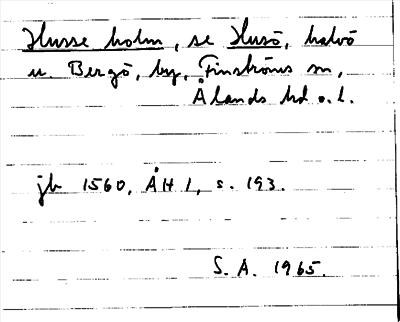 Husse holm, se Husö, halvö
u Bergö, by, Finströms sn,
Ålands hd o. l.
jb 1560, ÅH 1, s. 193.
S. A. 1965.